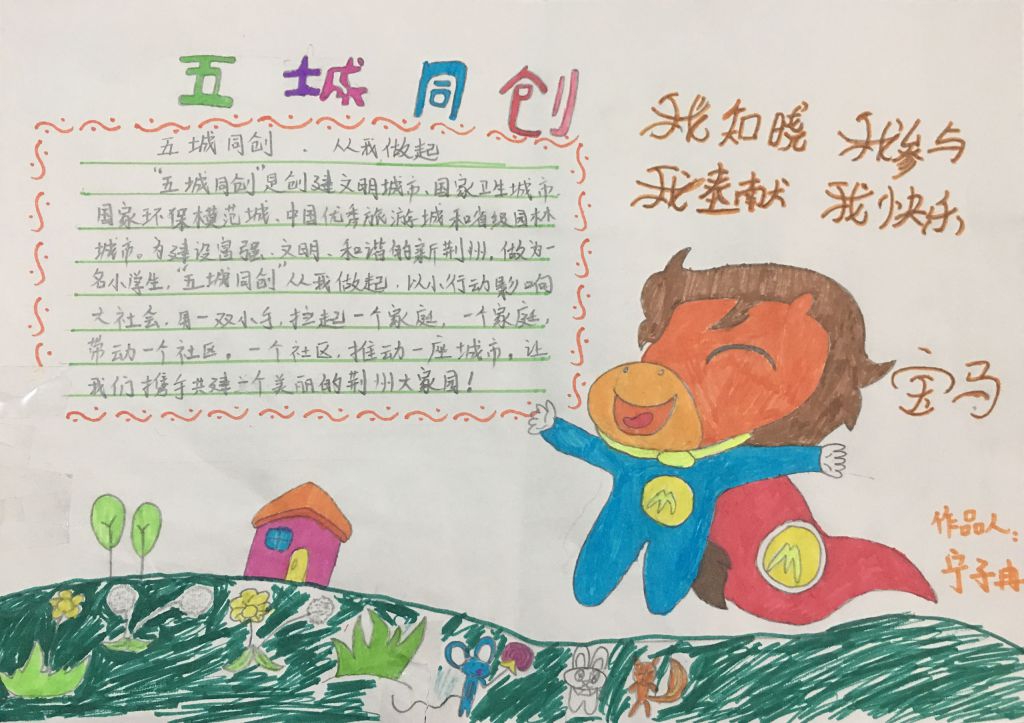 五城同创
五城同创 . 从我做起
"五城同创"是创建文明城市、国家卫生城市
国家环保模范城、中国优秀旅游城和省级园林
城市。为建设富强、文明、和谐的新荆州，做为一
名小学生，"五城同创"从我做起，以小行动影响
大社会，用一双小手，拉起一个家庭，一个家庭，
带动一个社区。一个社区，推动一座城市。让
我们携手共建一个美丽的荆州大家园！
我知晓 我参与
我奉献 我快乐
宝马
M
M
作品人：
宁子冉